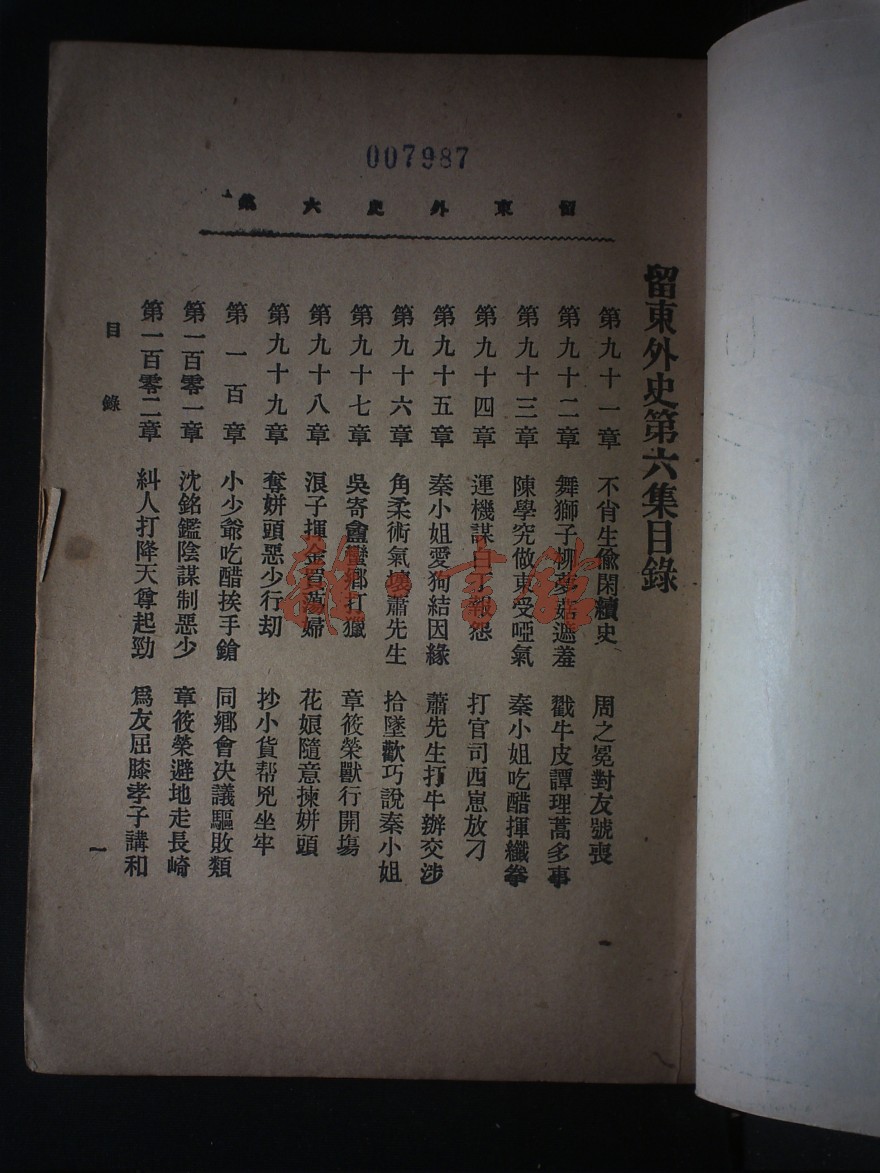 007987
留東外史六集
留東外史第六集目錄
第九十一章 不肖生偸閑續史 周之冕對友號喪
第九十二章 舞獅子柳夢菇遮羞 戳牛皮譚理蒿多事
第九十三章 陳學究做東受啞氣 秦小姐吃醋揮纖拳
第九十四章 運機謀白丁報怨 打官司西崽放刁
第九十五章 秦小姐愛狗結因緣 蕭先生打牛辦交涉
第九十六章 角柔術氣壞蕭先生 拾墜歡巧說秦小姐
第九十七章 吳寄盦蠻鄉打獵 章筱榮獸行開塲
第九十八章 浪子揮金買蕩婦 花娘隨意揀姘頭
第九十九章 奪姘頭惡少行刧 抄小貨帮兇坐牢
第一百章 小少爺吃醋挨手鎗 同鄉會决議驅敗類
第一百零一章 沈銘鑑陰謀制惡少 章筱榮避地走長崎
第一百零二章 糾人打降天尊起勁 爲友屈膝孝子講和
目錄
一
雜·書館